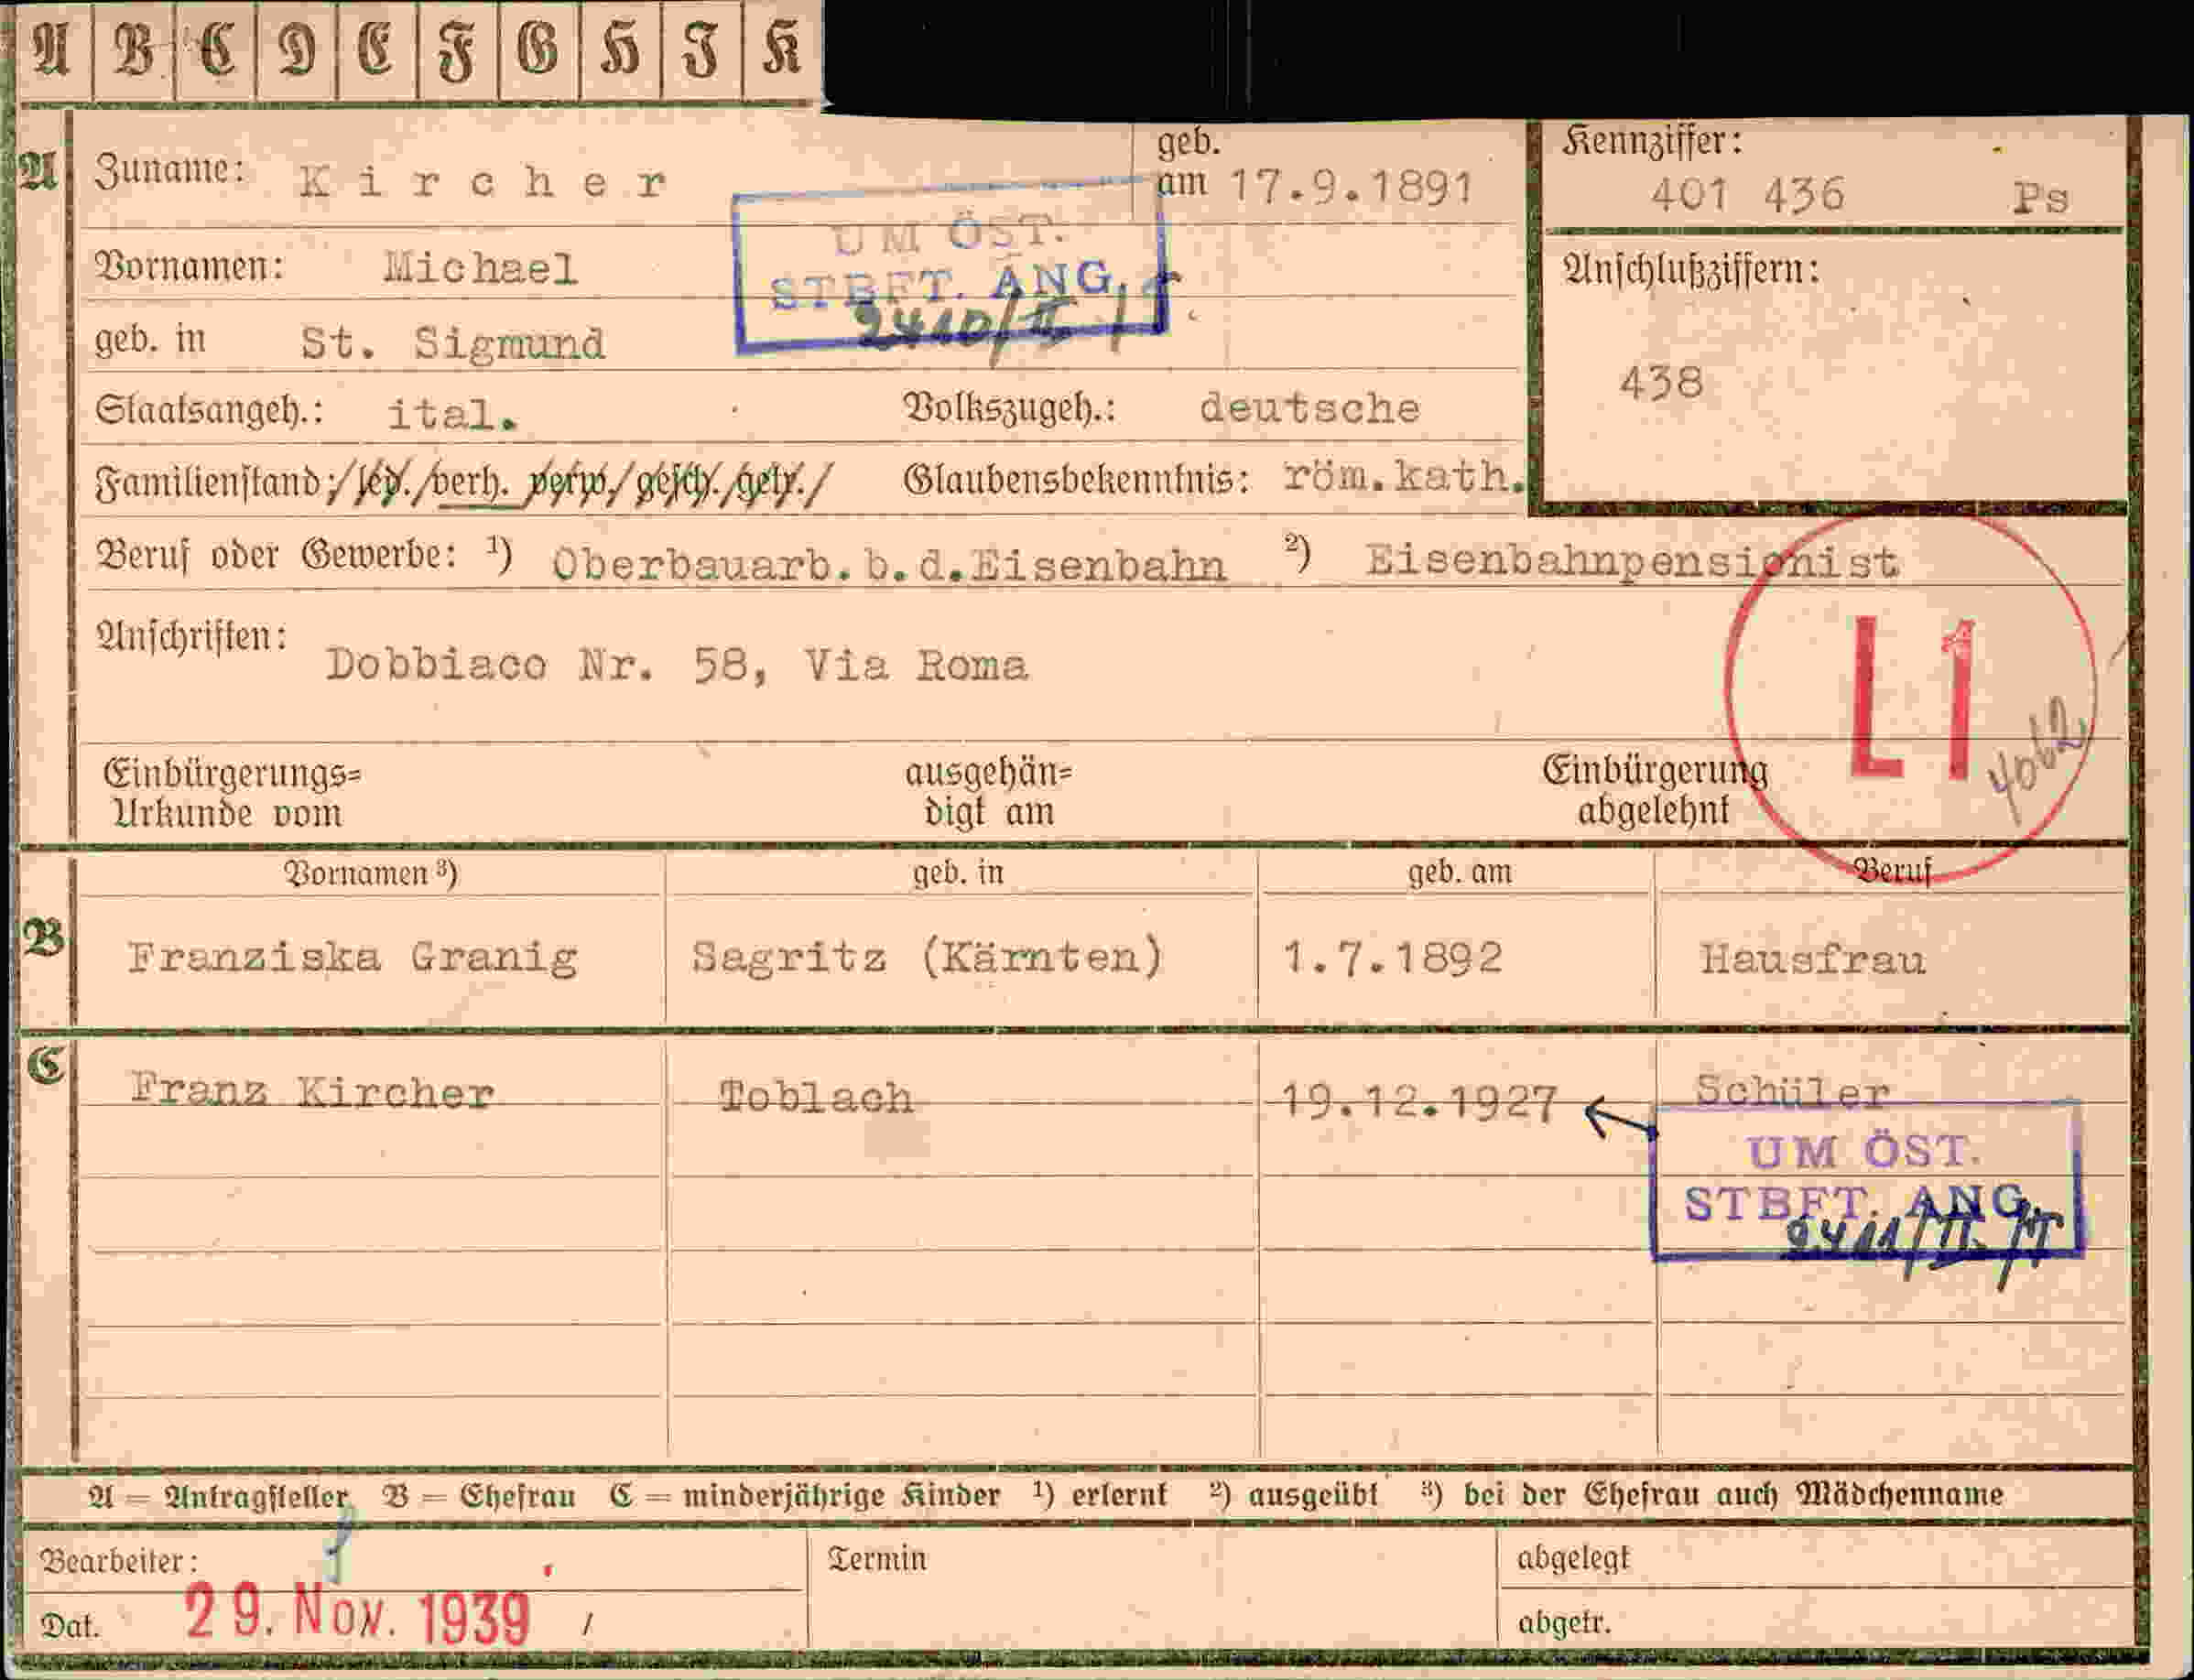 A B C D E F G H J K
A Zuname: Kircher geb. am 17.9.1891
Kennziffer: 401 436 Ps
UM ÖST.
STBFT. ANG.
2410/II
Vornamen: Michael
Anschlußziffern:
438
geb. in St. Sigmund
Staatsangeh.: ital. Volkszugeh.: deutsche
Familienstand: led. verh. verw. gesch. getr. Glaubensbekenntnis: röm.kath.
Beruf oder Gewerbe: 1) Oberbauarb.b.d.Eisenbahn 2) Eisenbahnpensionist
Anschriften: Dobbiaco Nr. 58, Via Roma
L1
4062
Einbürgerungs= ausgehän= Einbürgerung
Urkunde vom digt am abgelehnt
Vornamen 3) geb. in geb. am Beruf
B Franziska Granig Sagritz (Kärnten) 1.7.1892 Hausfrau
C Franz Kircher Toblach 19.12.1927 Schüler
UM ÖST.
STBFT. ANG.
2411/II.
A = Antragsteller B = Ehefrau C = minderjährige Kinder 1) erlernt 2) ausgeübt 3) bei der Ehefrau auch Mädchenname
Bearbeiter: Termin abgelegt
Dat. 29. Nov. 1939 abgetr.